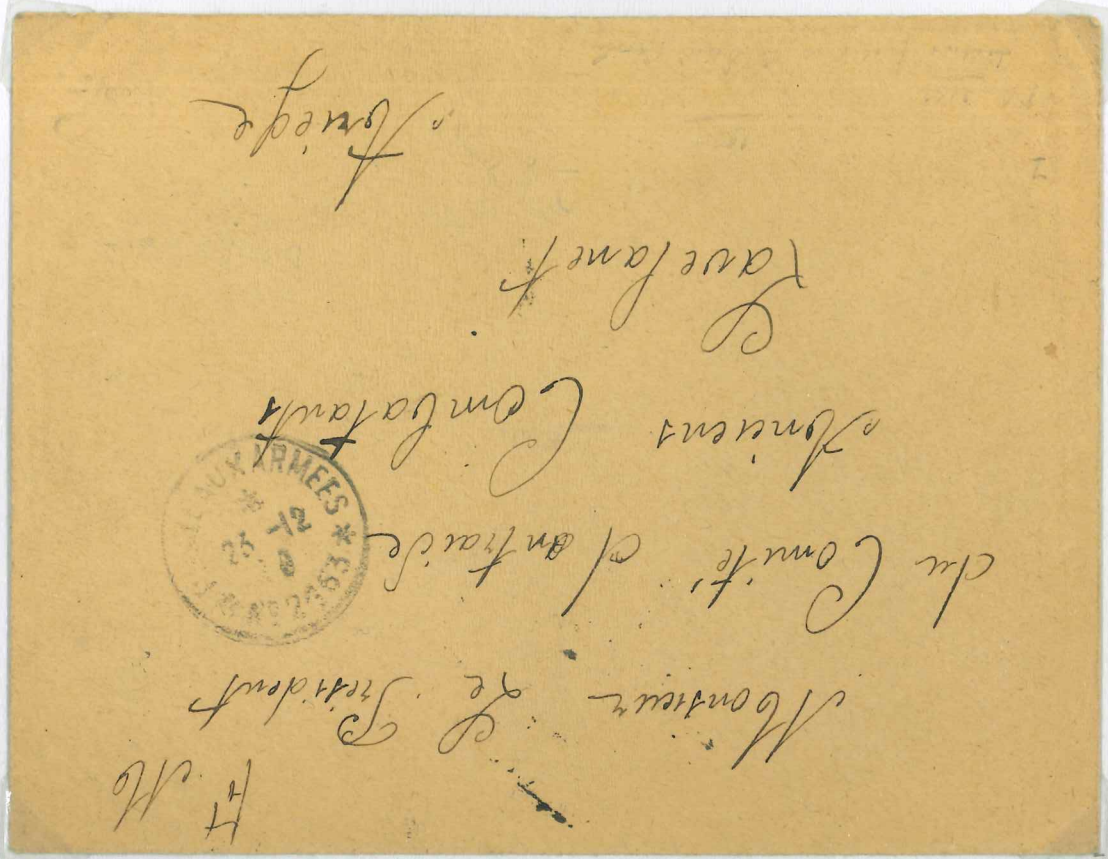 F. M
Monsieur Le Président
du Comité d'entraide
Anciens Combatants
Lavelanet
Ariège
AUX ARMEES
23 -12